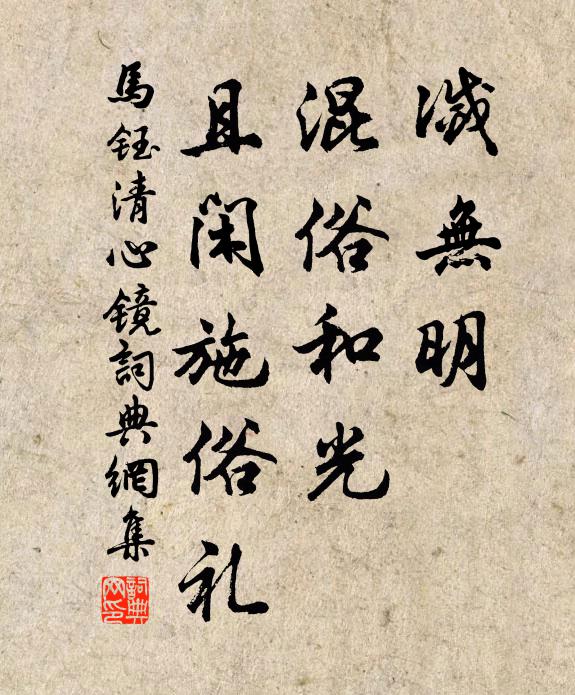 滅無明
混俗和光
且閑施俗礼
馬鈺清心鏡詞典網集
詞典网印